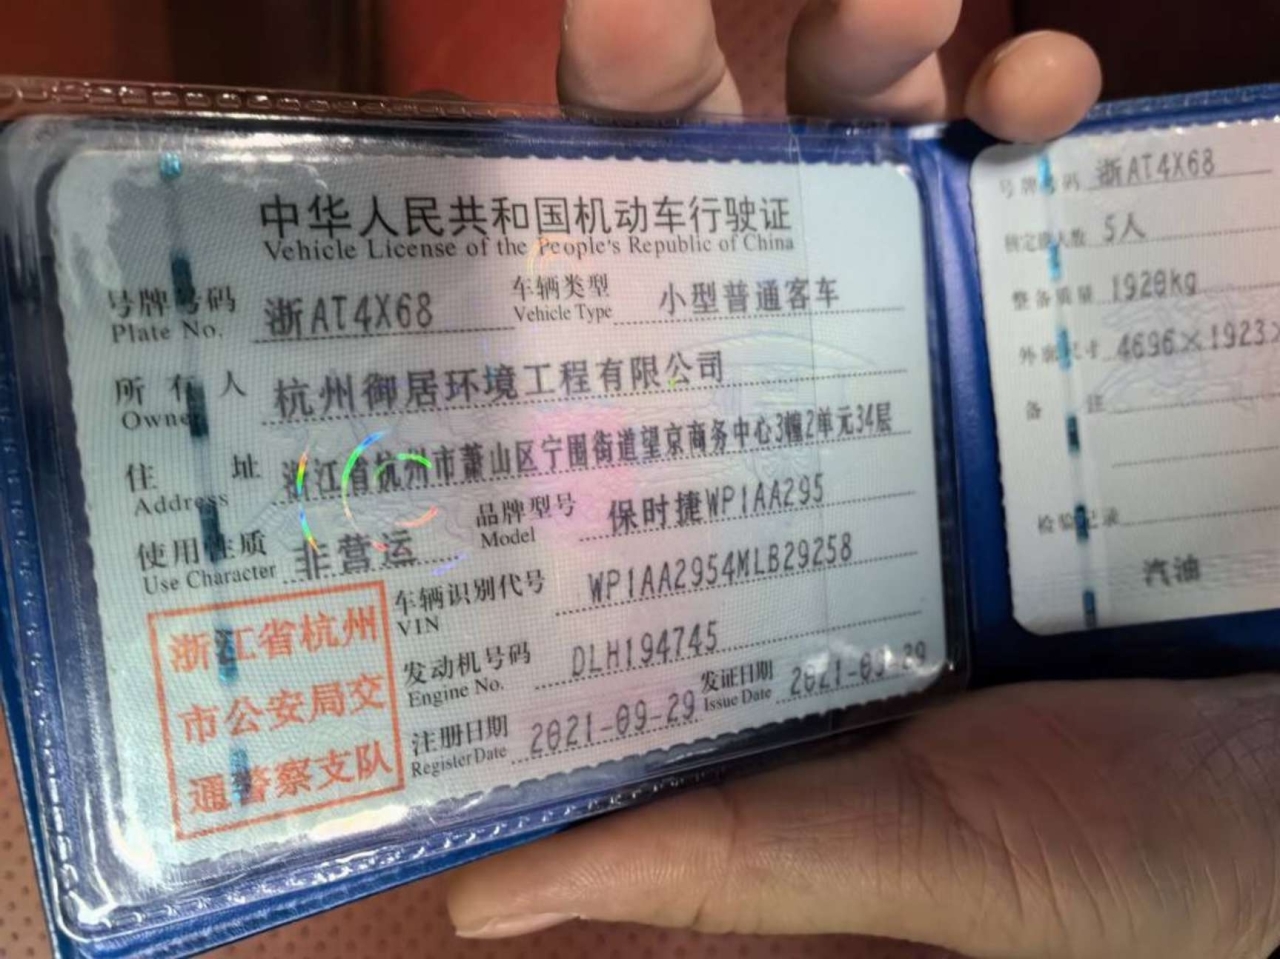 中华人民共和国机动车行驶证
Vehicle License of the People's Republic of China
号牌号码 浙AT4X68 车辆类型 小型普通客车
Plate No. Vehicle Type
所有人 杭州御居环境工程有限公司
Owner
住址 浙江省杭州市萧山区宁围街道望京商务中心3幢2单元34层
Address
使用性质 非营运 品牌型号 保时捷WP1AA295
Use Character Model
车辆识别代号 WP1AA2954MLB29258
VIN
发动机号码 DLH194745
Engine No.
注册日期 2021-09-29 发证日期 2021-09-29
Register Date Issue Date
浙江省杭州
市公安局交
通警察支队
号牌号码 浙AT4X68
核定载人数 5人
整备质量 1920kg
外廓尺寸 4696×1923×
备注
检验记录
汽油